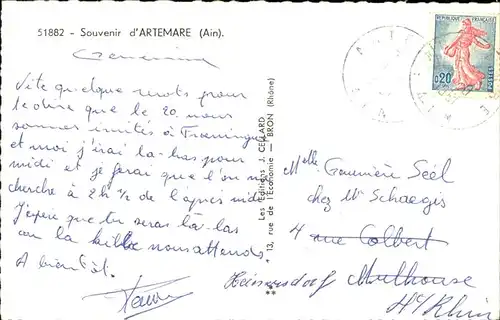 51882 - Souvenir d'ARTEMARE (Ain).
Vite quelque mots pour
te dire que le 20. nous
sommes invités à
et moi j'irai là-bas pour
midi et je ferai que l'on
cherche à 2h ½ de l'après midi
J'espère que tu seras là-bas
ou la nous attends
A bientôt.
Les Editions J. CELLARD
13, rue de l'Economie - BRON (Rhône)
REPUBLIQUE FRANÇAISE
0,20
POSTES
Melle Séel
chez Mr Schaegis
4 rue Colbert
Mulhouse
Ht Rhin